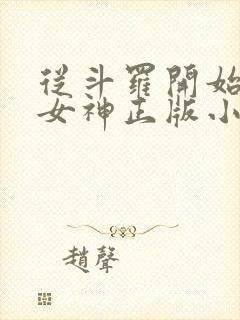 從斗羅開始
女神正版小
趙聲